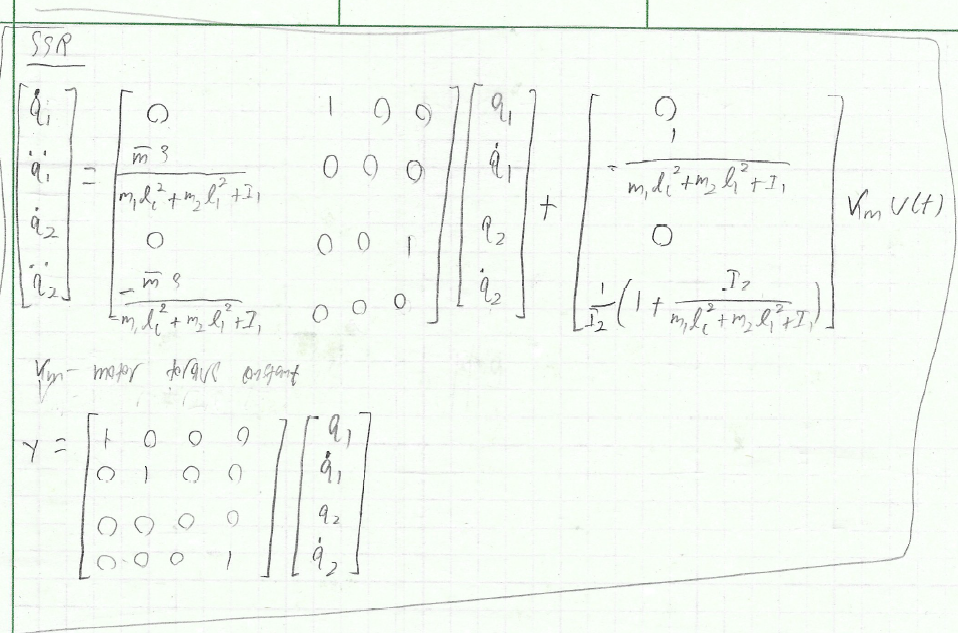 SSR
[q̇₁; q̈₁; q̇₂; q̈₂] = [0 1 0 0; m̄g/(m₁lc²+m₂l₁²+I₁) 0 0 0; 0 0 0 1; -m̄g/(m₁lc²+m₂l₁²+I₁) 0 0 0] [q₁; q̇₁; q₂; q̇₂] + [0; -1/(m₁lc²+m₂l₁²+I₁); 0; 1/I₂ (1 + I₂/(m₁lc²+m₂l₁²+I₁))] Km U(t)
Km - motor constant
Y = [1 0 0 0; 0 1 0 0; 0 0 0 0; 0 0 0 1] [q₁; q̇₁; q₂; q̇₂]